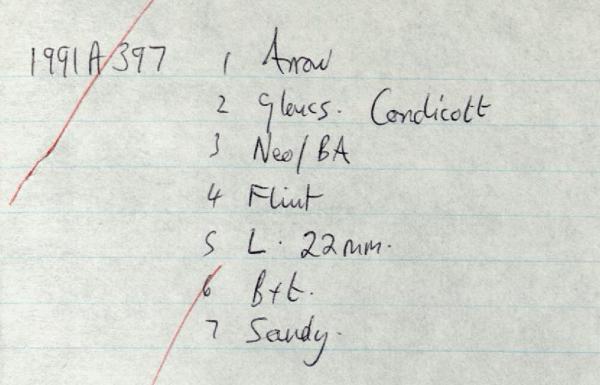 1991A397 1 Arrow
2 Gloucs. Condicott
3 Neo/BA
4 Flint
5 L. 22mm.
6 B+t.
7 Sandy.